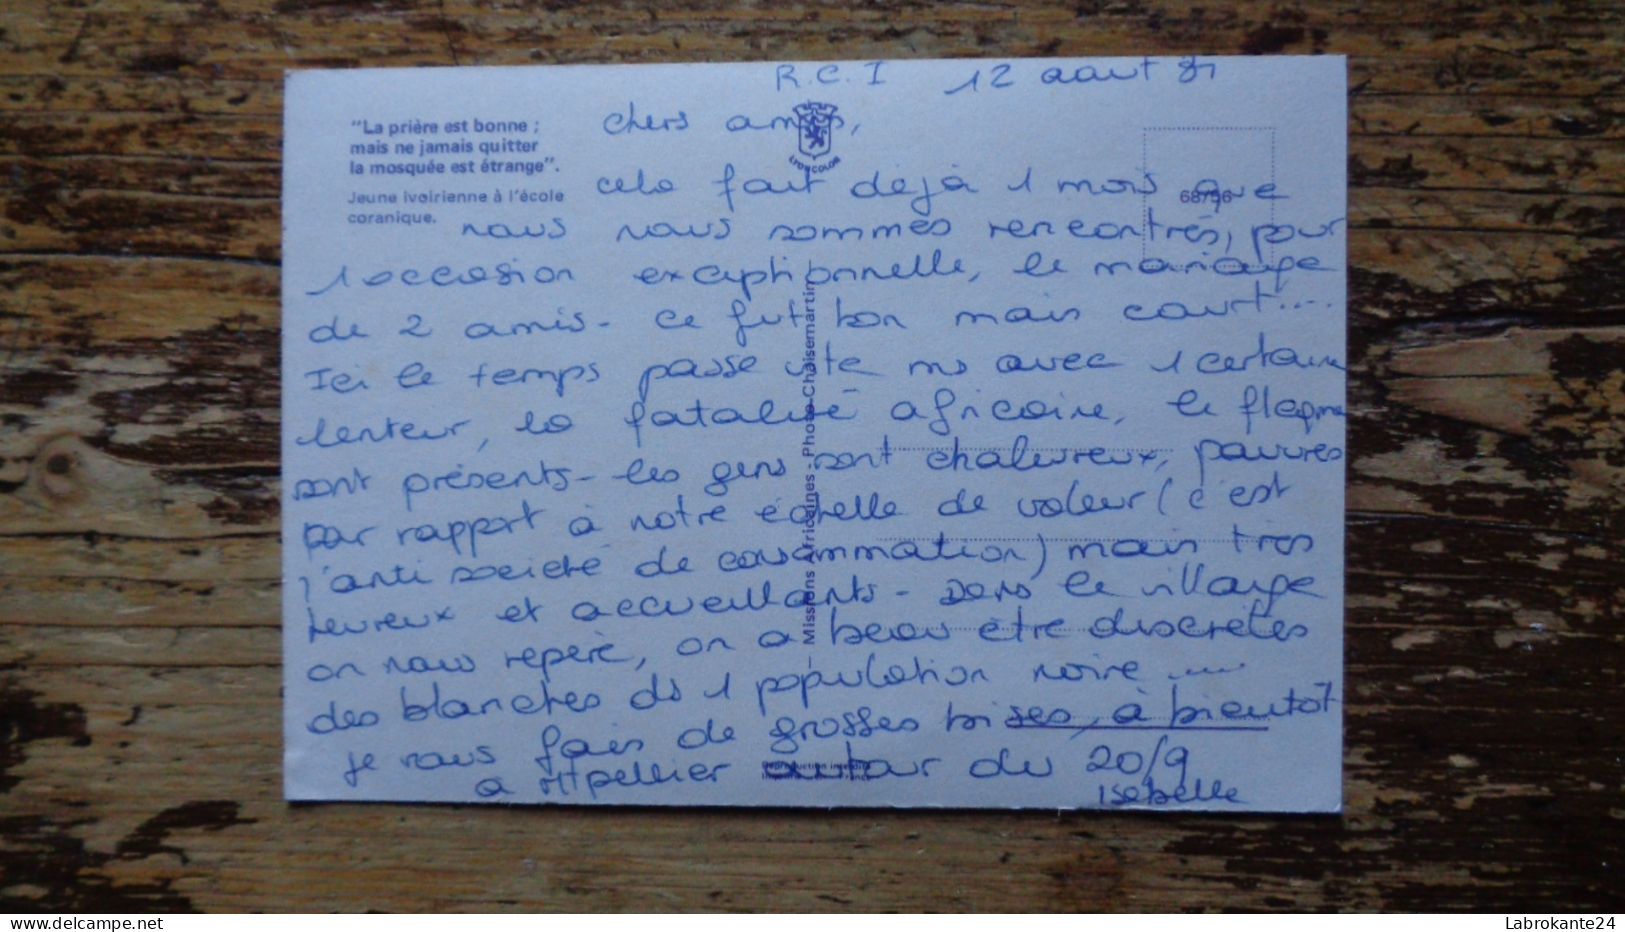 R.C.I 12 aout 81
"La prière est bonne ;
mais ne jamais quitter
la mosquée est étrange".
Jeune ivoirienne à l'école
coranique.
LYONCOLOR
68/56
chers amis,
cela fait déjà 1 mois que
nous nous sommes rencontrés, pour
l'occasion exceptionnelle, le mariage
de 2 amis - ce fut bon mais court....
Ici le temps passe vite ms avec 1 certaine
lenteur, la fatalité africaine, le flegme
sont présents - les gens sont chaleureux, pauvres
par rapport à notre échelle de valeur (c'est
l'anti société de consommation) mais très
heureux et accueillants - Dans le village
on nous repère, on a beau être discrètes
des blanches ds 1 population noire .....
je vous fais de grosses bises, à bientôt
à Mtpellier autour du 20/9
Isabelle
Missions Africaines - Photo Chaisemartin
Reproduction interdite
delcampe.net
Labrokante24